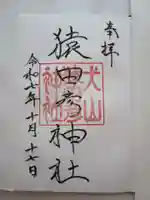 奉拝
猿田彦神社
令和七年十月十七日